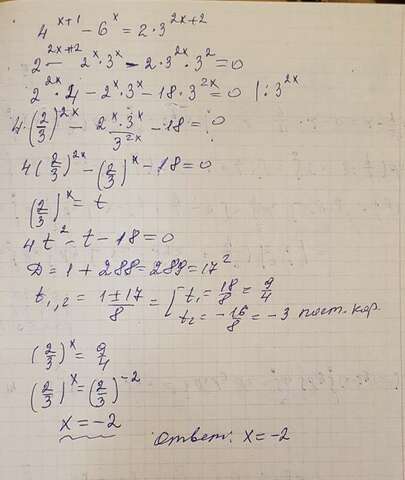 4^{x+1} - 6^x = 2·3^{2x+2}
2^{2x+2} - 2^x·3^x - 2·3^{2x}·3^2 = 0
2^{2x}·4 - 2^x·3^x - 18·3^{2x} = 0 |:3^{2x}
4·(2/3)^{2x} - 2^x·3^x/3^{2x} - 18 = 0
4(2/3)^{2x} - (2/3)^x - 18 = 0
(2/3)^x = t
4t^2 - t - 18 = 0
D = 1 + 288 = 289 = 17^2
t_{1,2} = 1±17/8 = [ t_1 = 18/8 = 9/4
t_2 = -16/8 = -3 пост. кор.
(2/3)^x = 9/4
(2/3)^x = (2/3)^{-2}
x = -2
Ответ: x = -2